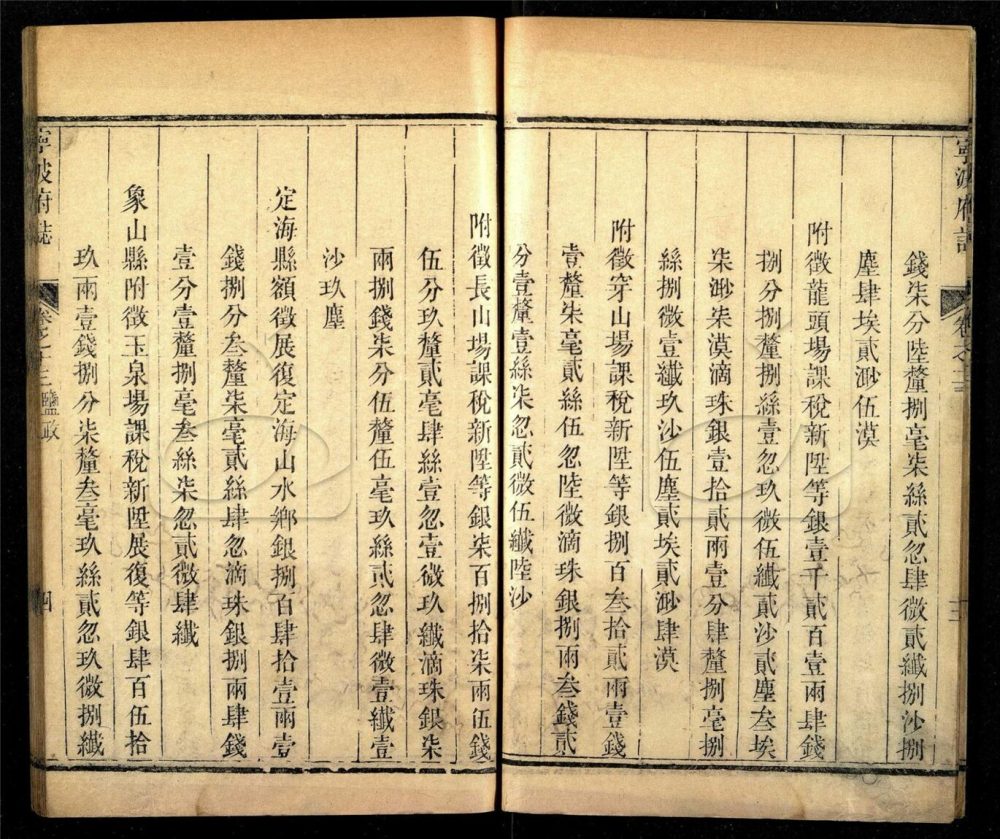 寧波府誌
卷之十三
三
錢柒分陸釐捌毫柒絲貳忽肆微貳纖捌沙捌
塵肆埃貳渺伍漠
附徵龍頭場課稅新陞等銀壹千貳百壹兩肆錢
捌分捌釐捌絲壹忽玖微伍纖貳沙貳塵叁埃
柒渺柒漠滴珠銀壹拾貳兩壹分肆釐捌毫捌
絲捌微壹纖玖沙伍塵貳埃貳渺肆漠
附徵穿山場課稅新陞等銀捌百叁拾貳兩壹錢
壹釐柒毫貳絲伍忽陸微滴珠銀捌兩叁錢貳
分壹釐壹絲柒忽貳微伍纖陸沙
附徵長山場課稅新陞等銀柒百捌拾柒兩伍錢
伍分玖釐貳毫肆絲壹忽壹微玖纖滴珠銀柒
兩捌錢柒分伍釐伍毫玖絲貳忽肆微壹纖壹
沙玖塵
定海縣額徵展復定海山水鄉銀捌百肆拾壹兩壹
錢捌分叁釐柒毫貳絲肆忽滴珠銀捌兩肆錢
壹分壹釐捌毫叁絲柒忽貳微肆纖
象山縣附徵玉泉場課稅新陞展復等銀肆百伍拾
玖兩壹錢捌分柒釐叁毫玖絲貳忽玖微捌纖
寧波府誌
卷之十三 鹽政
四